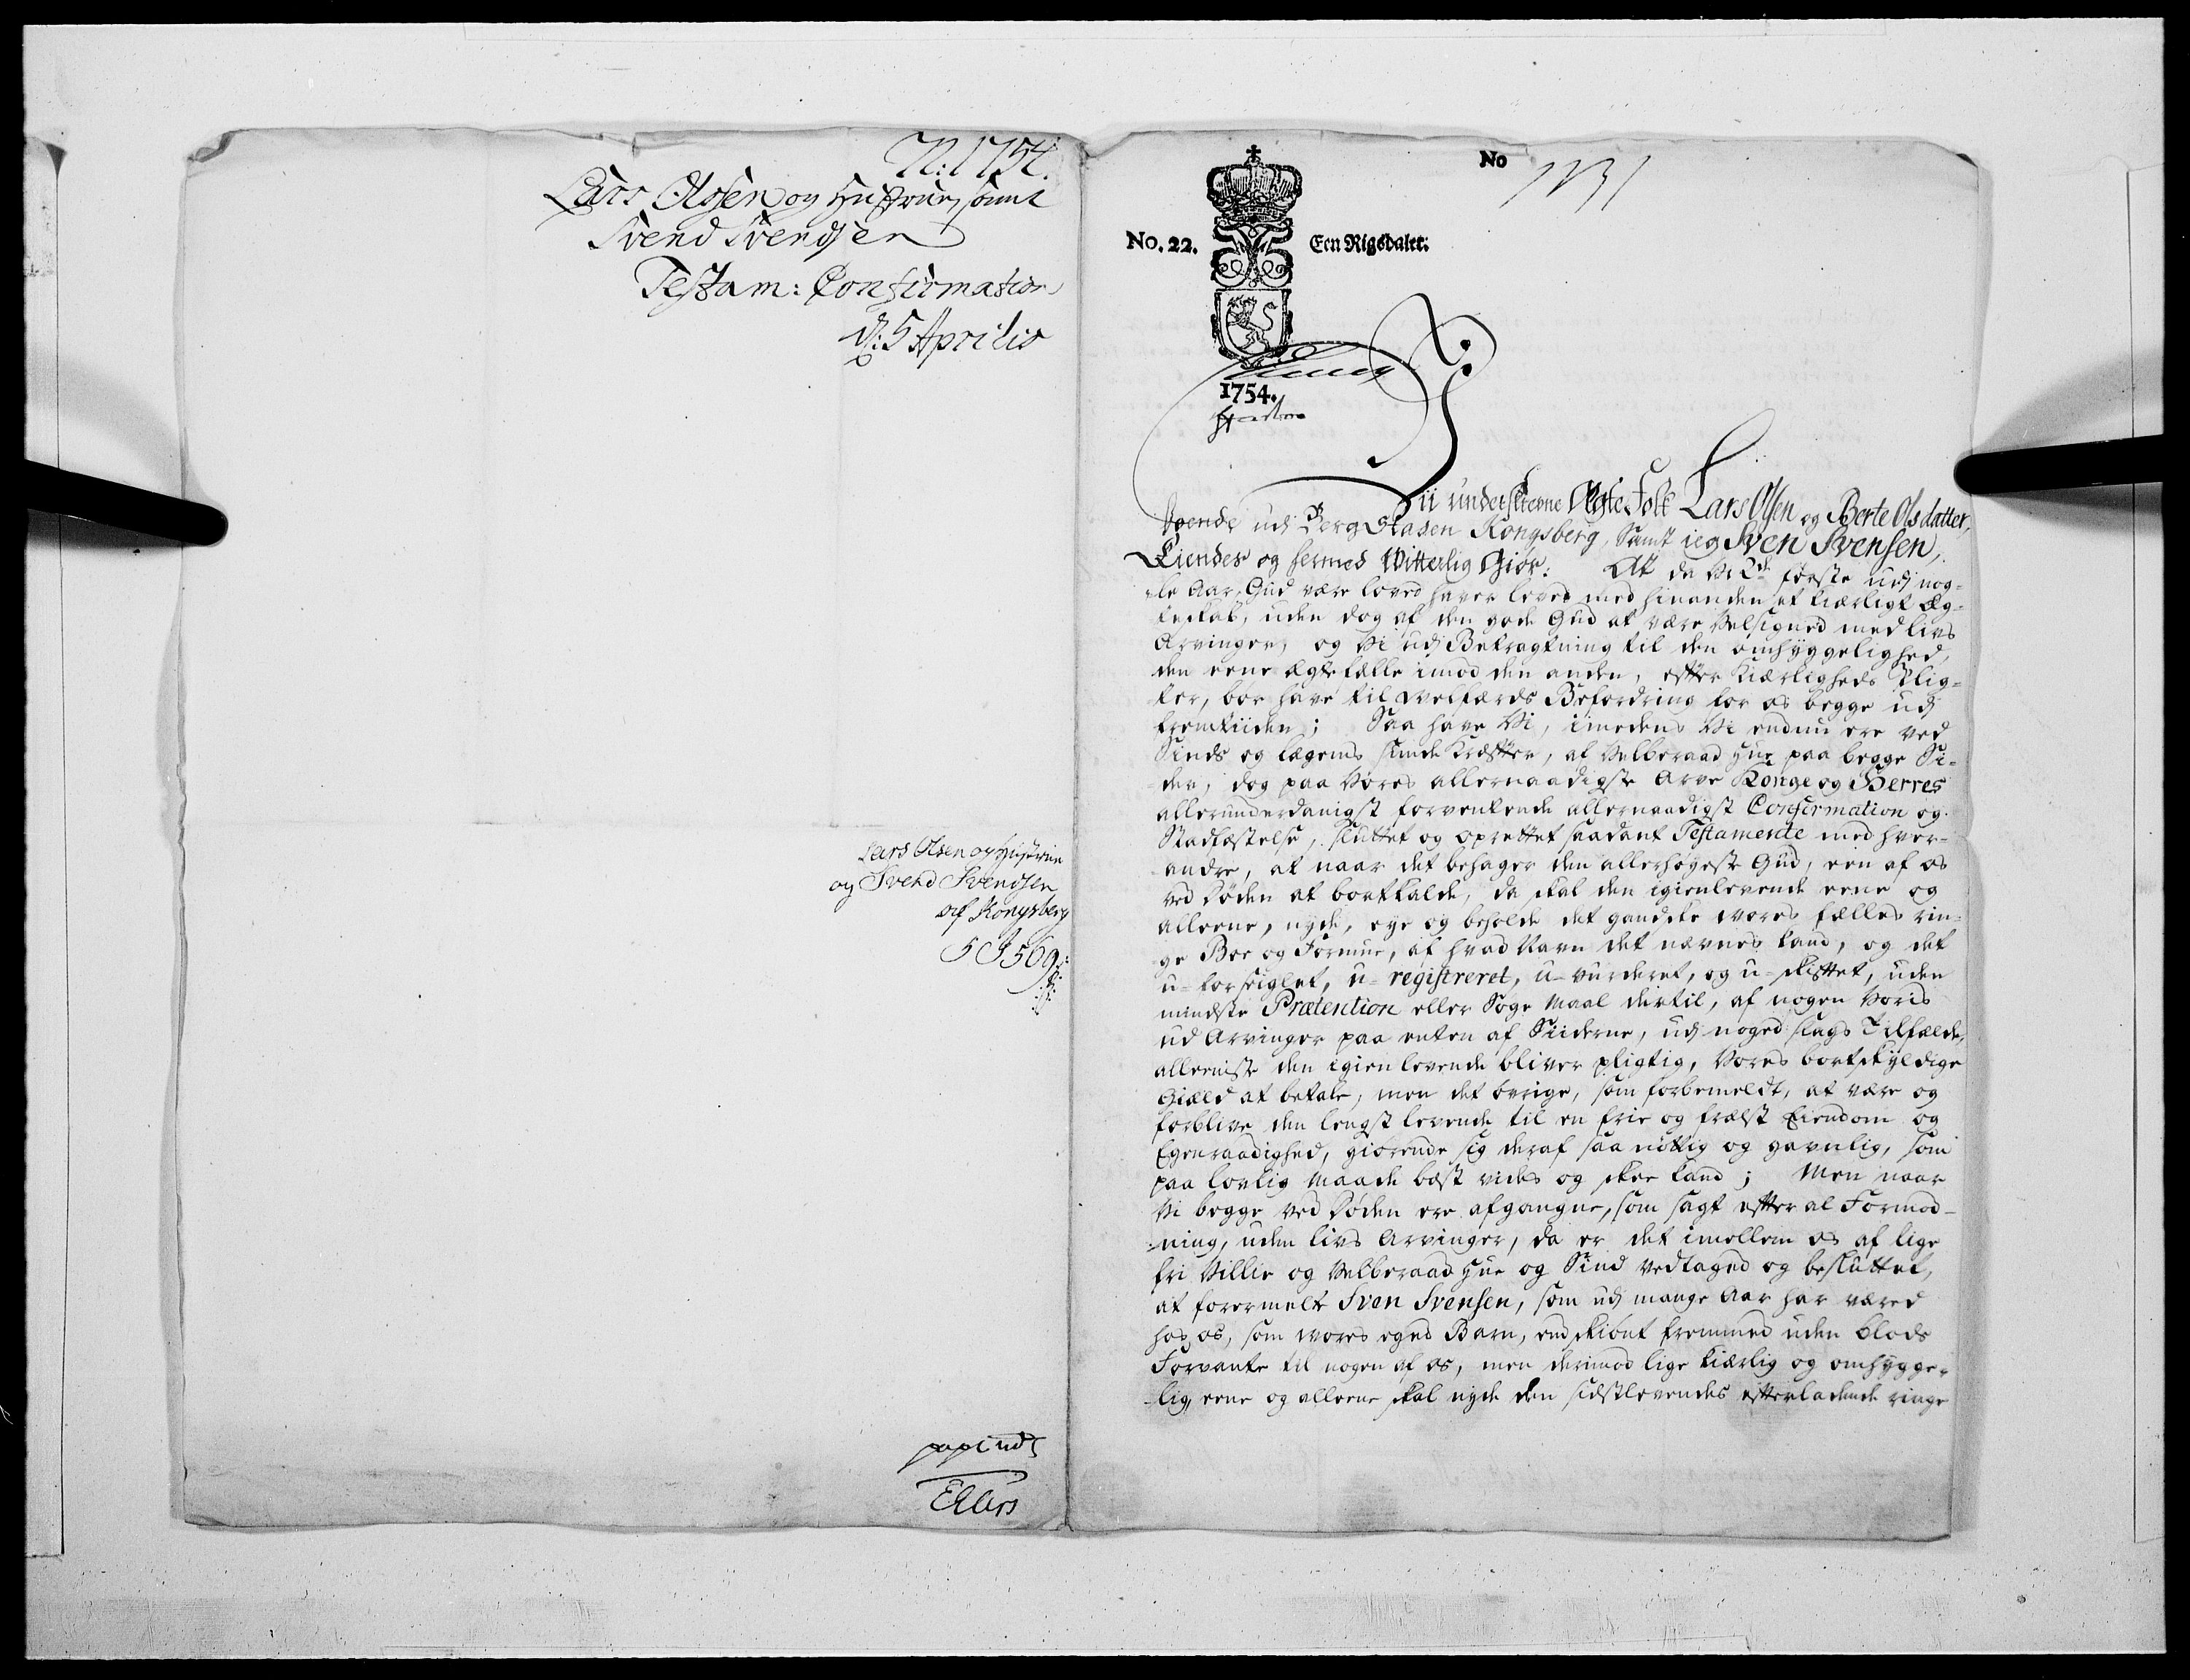 N: 1754.
Lars Olsen og Hustrue, samt
Svend Svendsen
Testam: Confirmation
d: 5 Aprilis
Lars Olsen og Hustrue
og Svend Svendsen
af Kongsberg
Ellers
No 1731
No. 22. Een Rigsdaler.
1754.
Vii underskrevne Ægte Folk Lars Olsen og Berte Olsdatter,
boende udj Bergstaden Kongsberg, Samt ieg Sven Svensen,
Kiendes og hermed Witterlig Giør: At da Vi 2de første udj nog-
-le Aar, Gud være loved haver leved med hinanden et kierligt Æg-
teskab, uden dog af den gode Gud at være Velsigned med livs
Arvinger, og Vi udj Betragtning til den omhyggelighed,
den eene ægtefælle imod den anden, efter Kiærligheds Plig-
ter, bør have til Welfærds Befordring for os begge udj
fremtiiden; Saa have Vi, imedens Vi endnu ere ved
Sinds og Legems sunde Kræfter, af Velberaad Hue paa begge Si-
der, dog paa Vores allernaadigste Arve Konge og Herres
allerunderdanigst forventende allernaadigst Confirmation og
Stadfæstelse, sluttet og oprettet saadant Testamente med hver-
andre, at naar det behager den allerhøyeste Gud, een af os
ved Døden at bortkalde, da skal den igienlevende eene og
alleene, nyde, eye og beholde det gandske vores fælles rin-
ge Boe og Formue, af hvad Navn det nævnes kand, og det
u-forseiglet, u-registreret, u-vurderet, og u-skiftet, uden
mindste Prætention eller Søge Maal dertil, af nogen Voris
ud Arvinger paa enten af Siiderne, udj noged slags Tilfælde,
alleeniste den igienlevende bliver pligtig, Vores bortskyldige
Gield at betale, men det øvrige, som forbemeldt, at være og
forblive den lengst levende til en frie og frælst Eiendom og
Egenraadighed, giørende sig deraf saa nøttig og gavnlig, som
paa lovlig Maade best vides og skee kand; Men naar
Vi begge ved Døden ere afgangne, som sagt efter al Formod-
-ning, uden livs Arvinger, da er det imellem os af lige
fri Villie og Velberaad Hue og Sind vedtaged og besluttet,
at forermelte Sven Svensen, som udj mange Aar har væred
hos os, som vores eged Barn, endskiønt fremmed uden blods
Forvante til nogen af os, men derimod lige kiærlig og omhygge-
-lig, eene og alleene skal nyde den sidstlevendes efterladende ringe